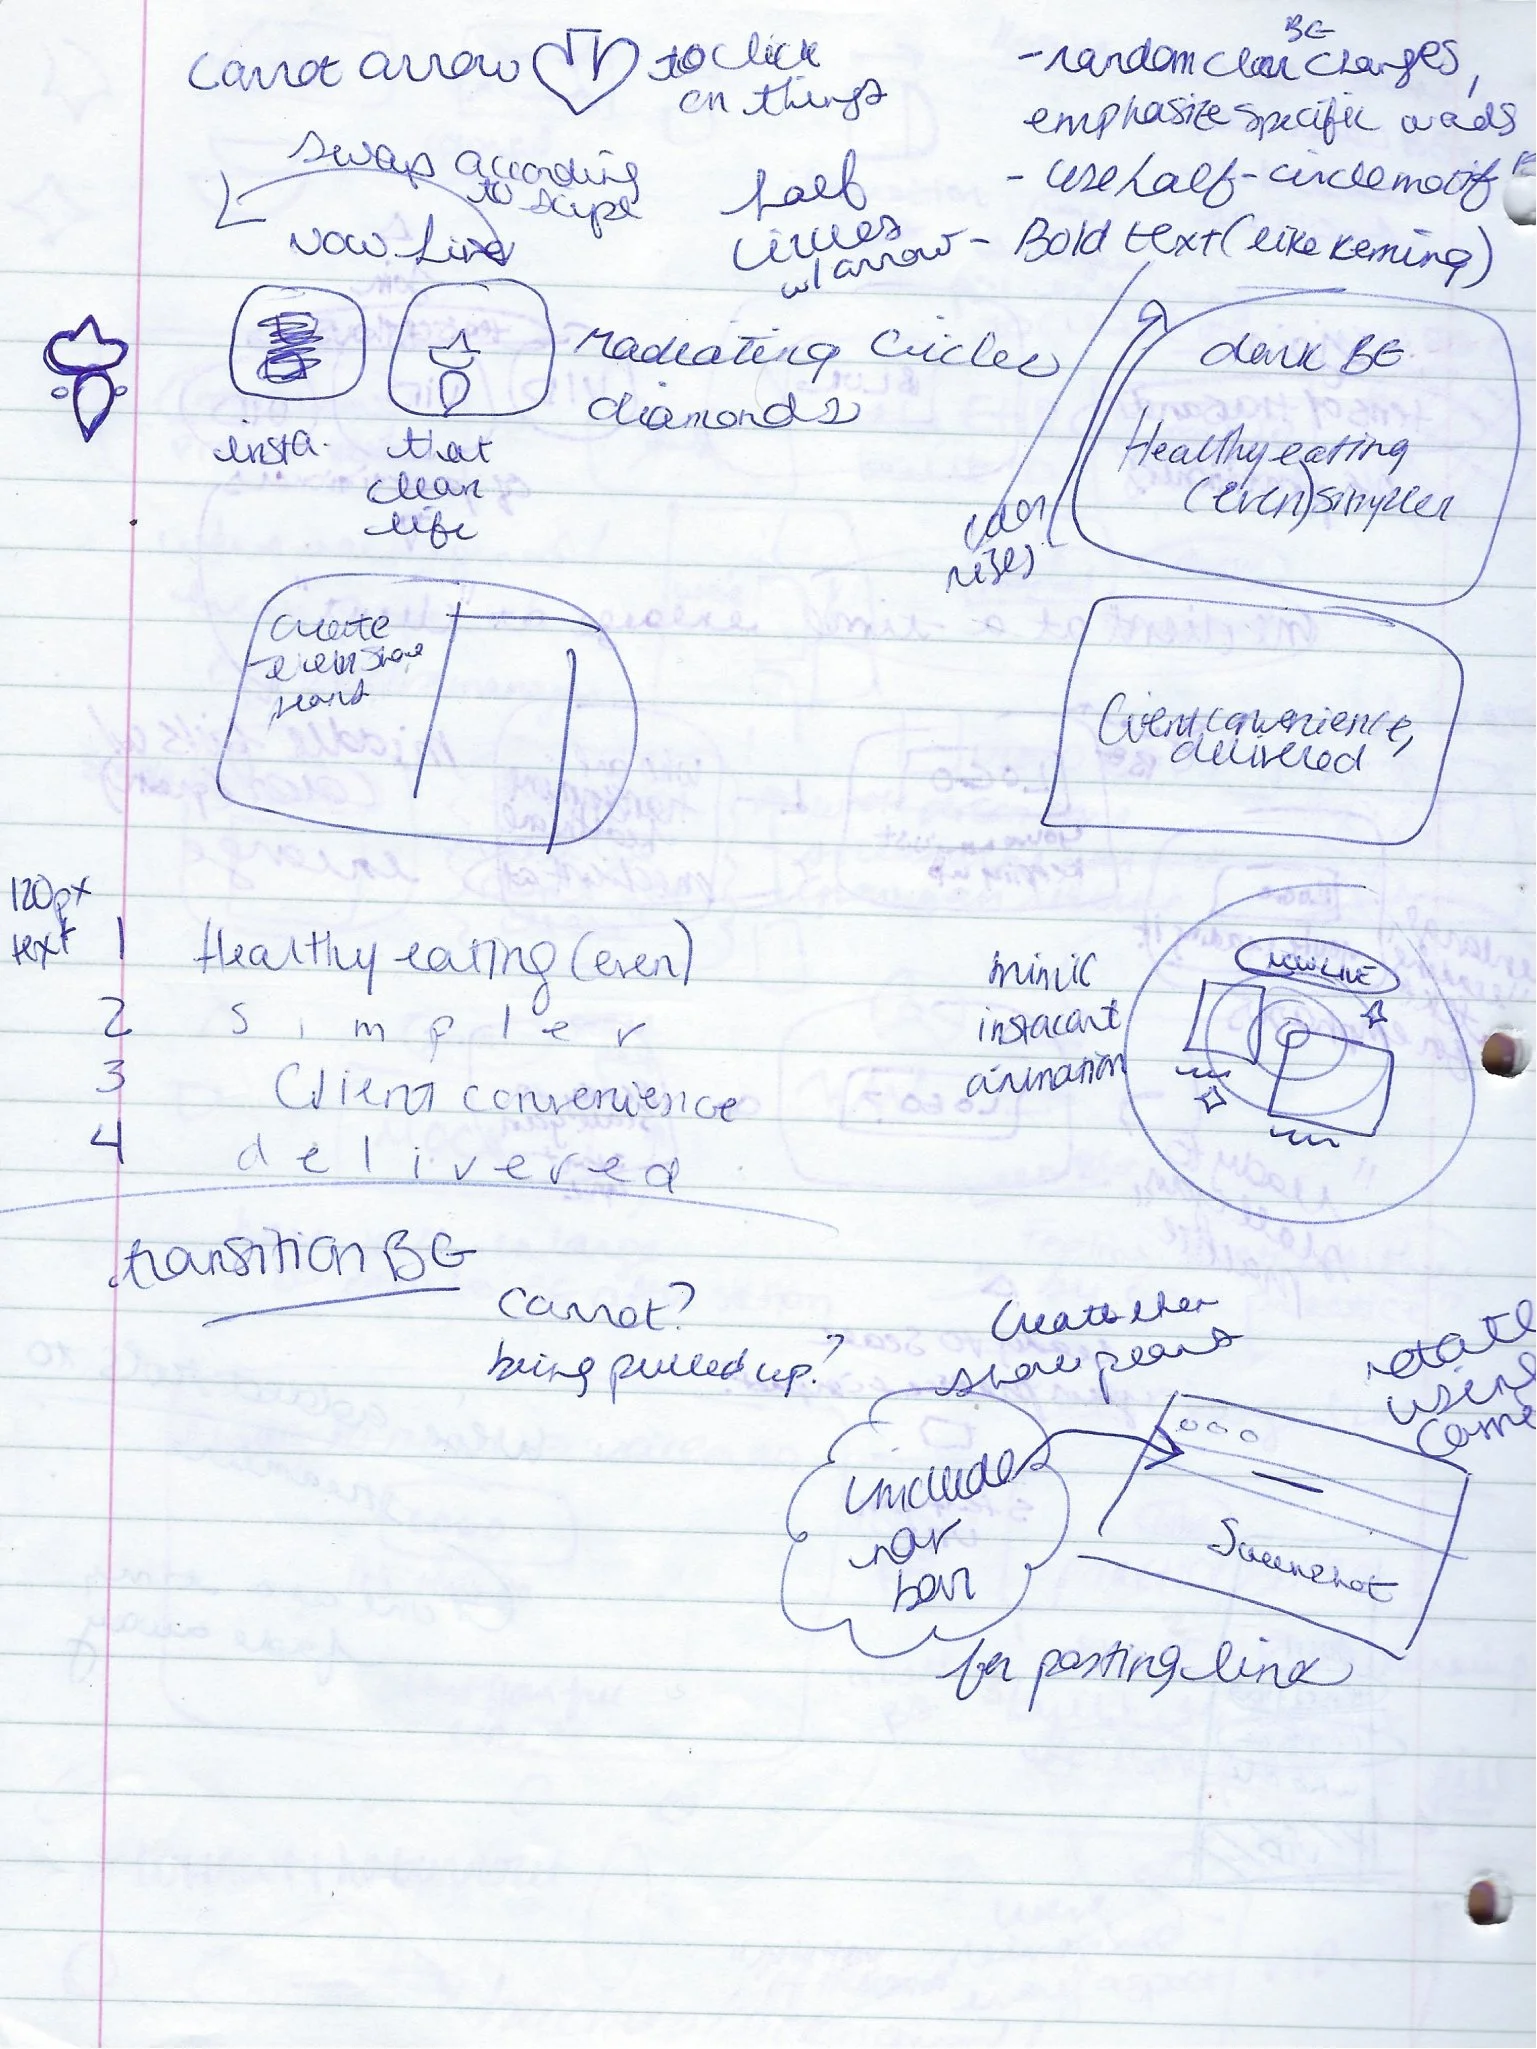 carrot arrow to click
on things
BG
- random color changes,
emphasize specific words
- use half-circle motif
- Bold text (like keming)
swap according
to script
now live
half
circles
w/ arrow
insta.
that
clean
life
radiating circles
diamonds
dark BG
Healthy eating
(even) simpler
color
rises
create
then share
plans
Client convenience,
delivered
120px
text
1 Healthy eating (even)
2 s i m p l e r
3 Client convenience
4 d e l i v e r e d
mimic
instacart
animation
NOW LIVE
transition BG
carrot?
being pulled up?
Create then
share plans
rotate
using
include
nav
bar
Screenshot
for posting link